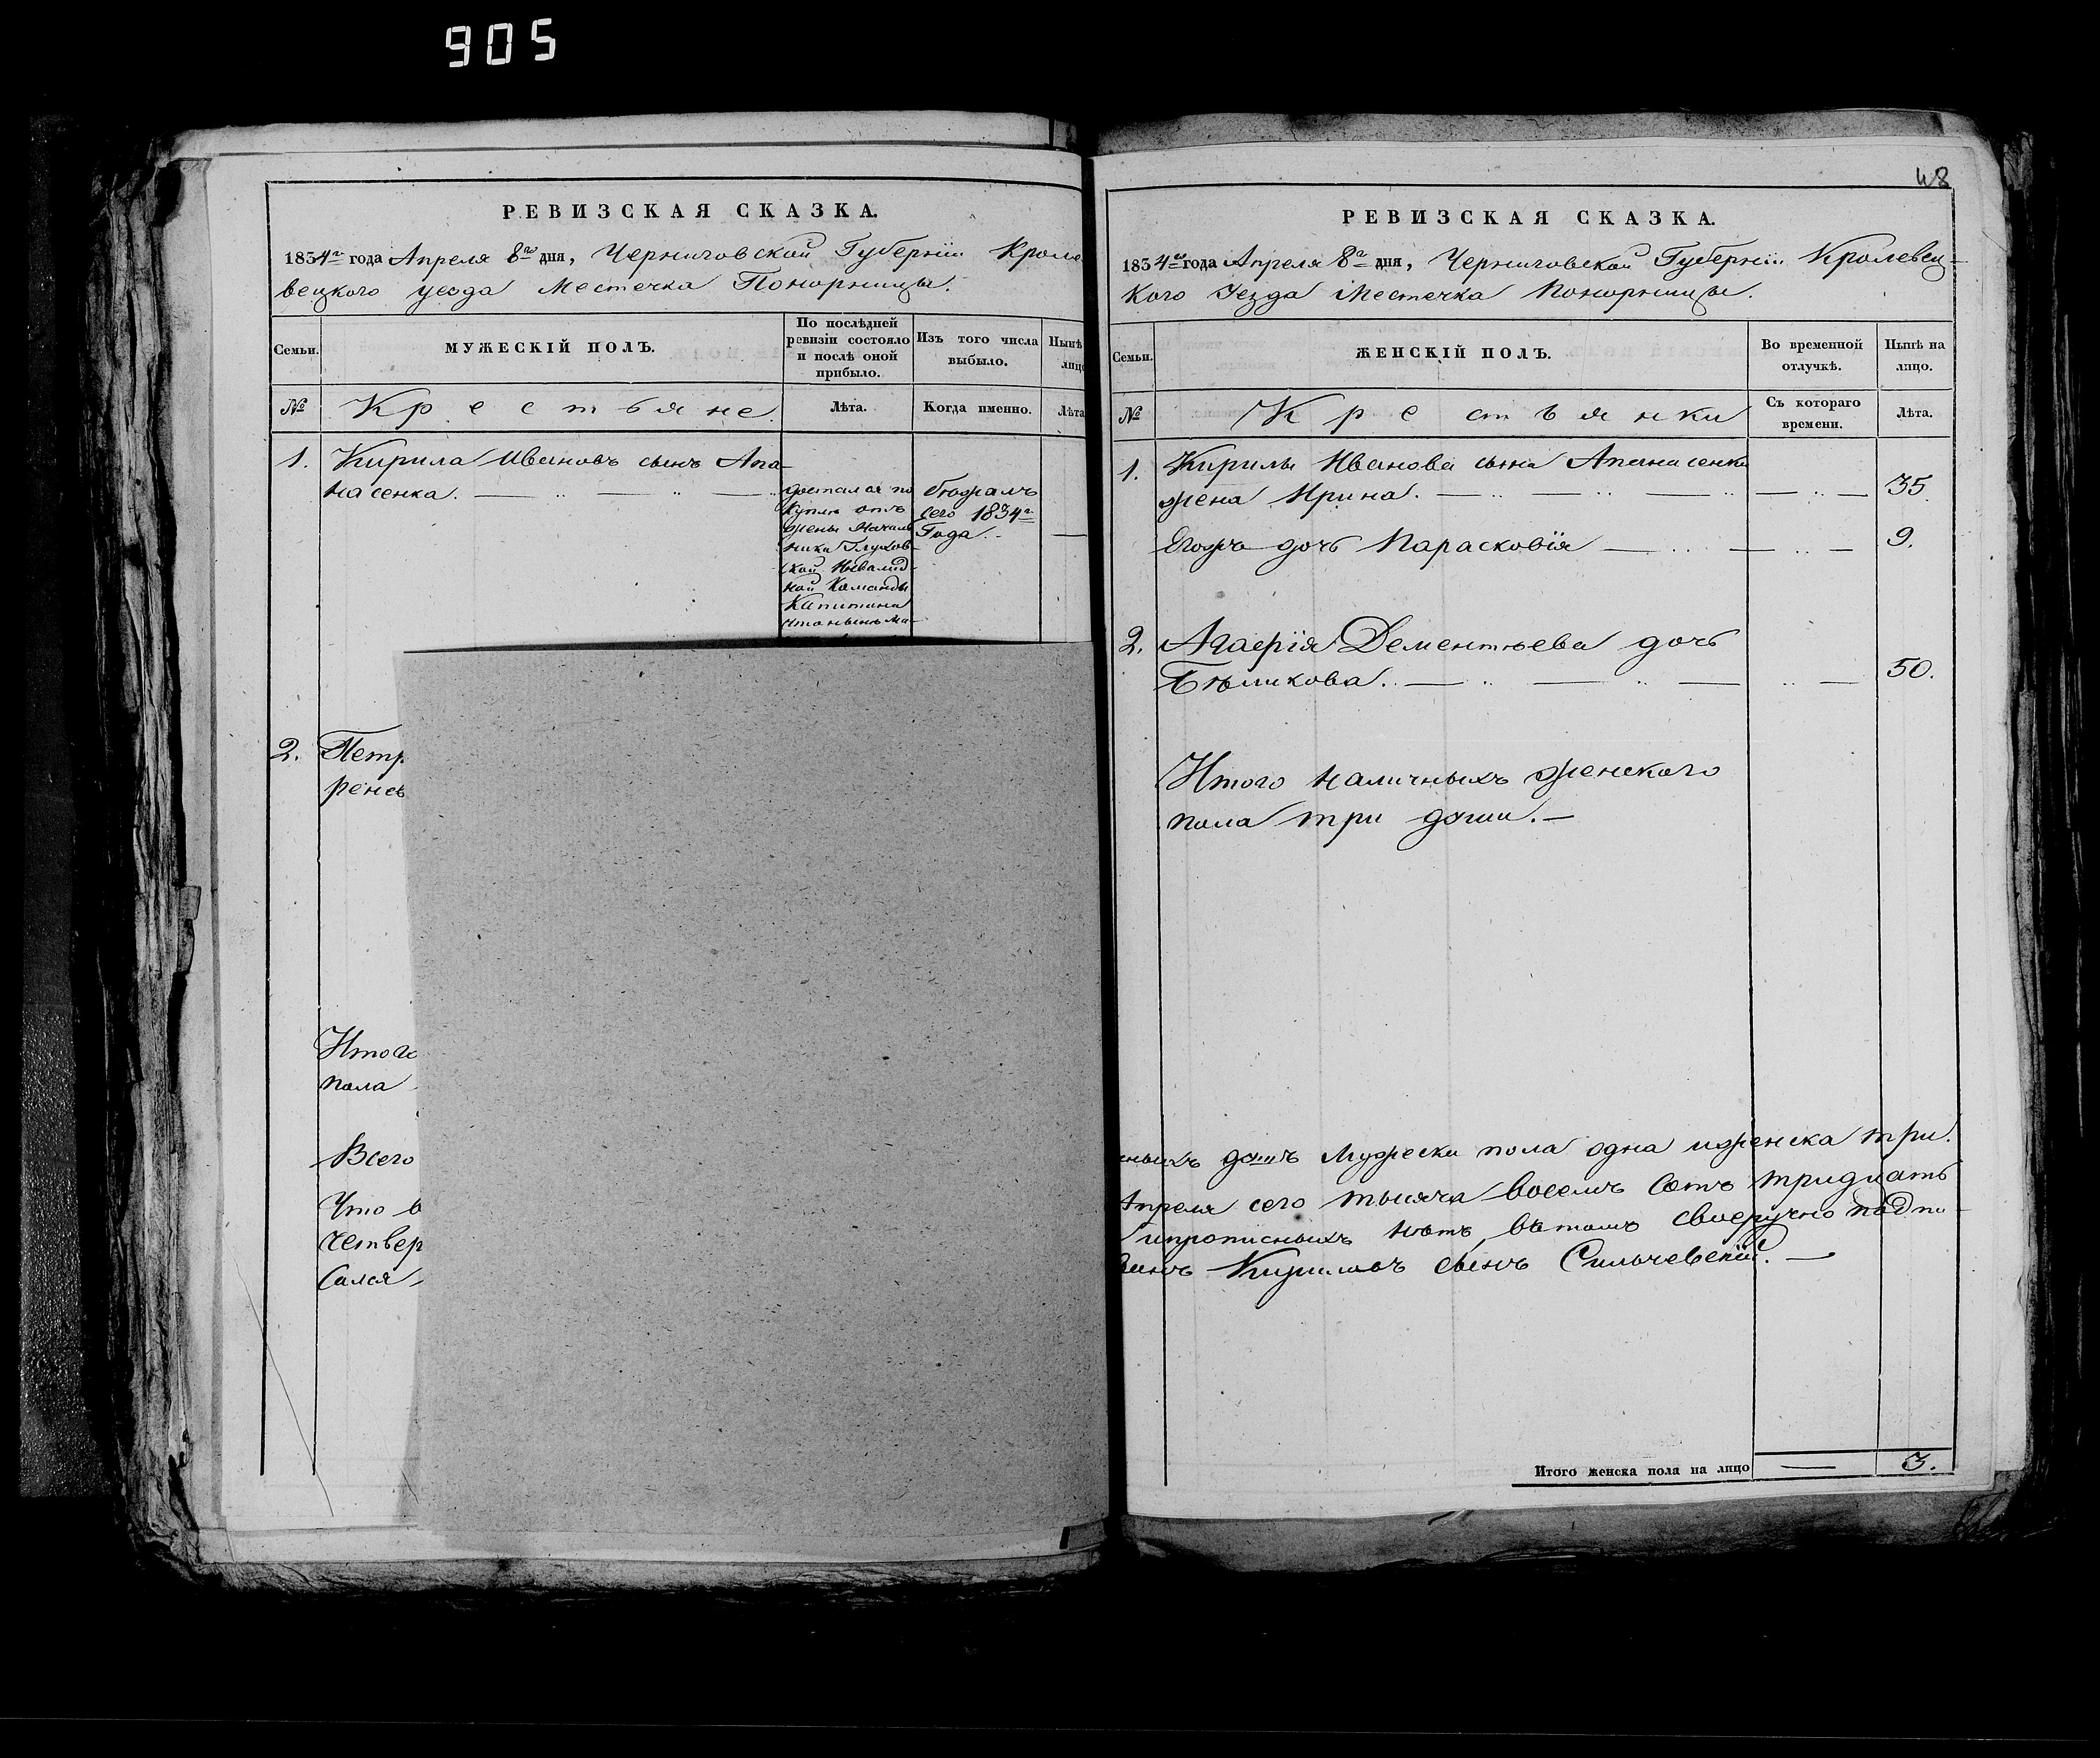 905
РЕВИЗСКАЯ СКАЗКА.
1834го года Апреля 8го дня, Черниговской Губернїи Кроле
вецкого уезда Местечка Понорницы.
Семьи.
МУЖЕСКІЙ ПОЛЪ.
По послѣдней ревизіи состояло и послѣ оной прибыло.
Изъ того числа выбыло.
Нынѣ лицо
№
Крестьяне
Лѣта.
Когда именно.
Лѣта
1. Кирила Ивановъ сынъ Апа-
насенка.
достался по
купле отъ
жены Началь
ника Глухов-
ской Инвалид-
ной Команды
Капитана
бюжалъ
сего 1834го
Года.
2. Петр
ренсь
Итого
пола
Всего
Что в
четвер
сался
48
РЕВИЗСКАЯ СКАЗКА.
1834го года Апреля 8го дня, Черниговской Губернїи Кролевец-
кого Уезда Местечка Понорницы.
Семьи.
ЖЕНСКІЙ ПОЛЪ.
Во временной отлучкѣ.
Нынѣ на лицо.
№
Крестьянки
Съ котораго времени.
Лѣта.
1. Кирилы Иванова сына Апанасенка
жена Ирина. 35.
Егожъ дочь Парасковїя 9.
2. Агаерїя Дементьева дочь
Бѣликова. 50.
Итого наличныхъ женского
пола три души.
ныхъ душъ Мужеска пола одна иженска три.
Апреля сего тысяча восемь сотъ тридцать
ипрописныхъ нѣтъ, вътомъ своеручно подпи-
Кириловъ сынъ Сильчевскій.
Итого женска пола на лицо
3.